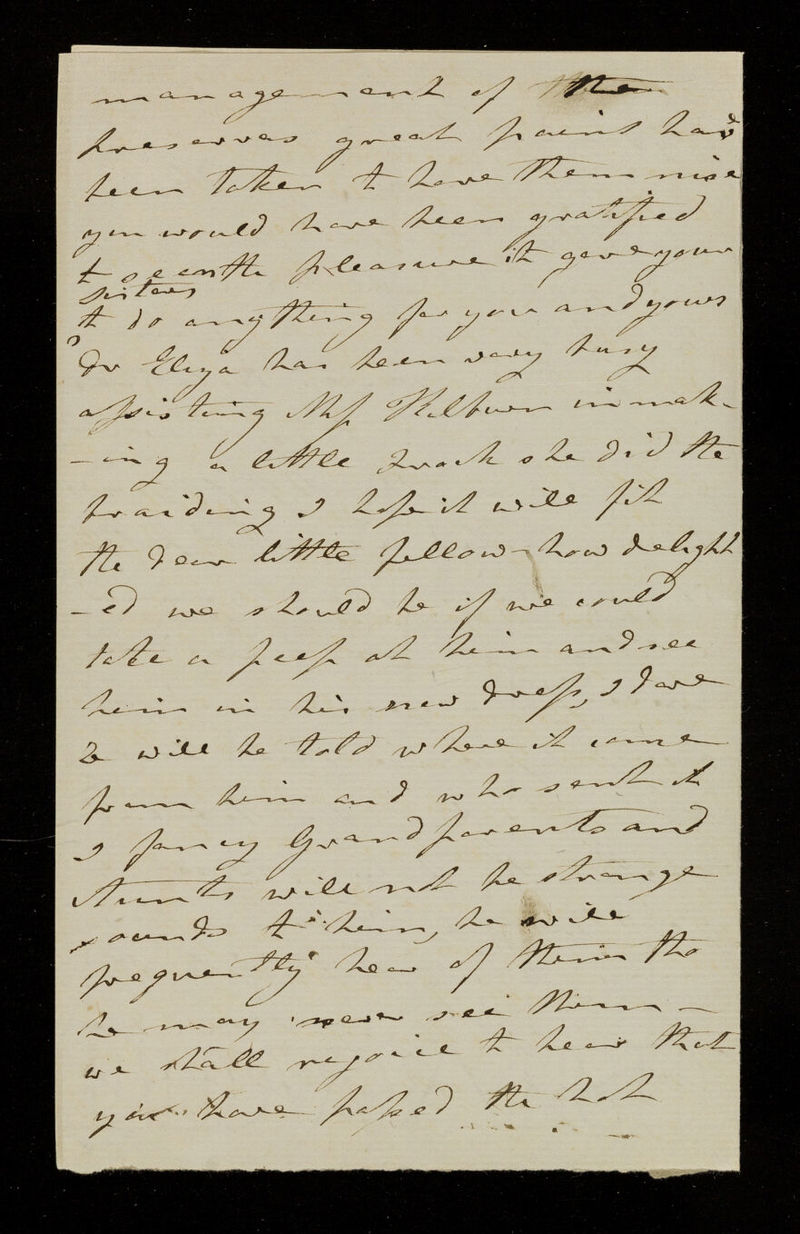 management of the
preserves great pains has
been taken to have them nice
you would have been gratified
to seen the pleasure it gave your
sisters
to do any thing for you and yours
Dr Eliza has been very busy
assisting Miss Kilburn in mak-
-ing a little Frock she did the
braiding I hope it will fit
the dear little fellow - how delight
-ed we should be if we could
take a peep at him and see
him in his new dress, I dare
say will be told where it came
from him and who sent it
I fancy Grandparents and
Aunts will not be strange
sounds to him, he will
frequently hear of them tho
he may never see them -
we shall rejoice to hear that
you have passed the hot